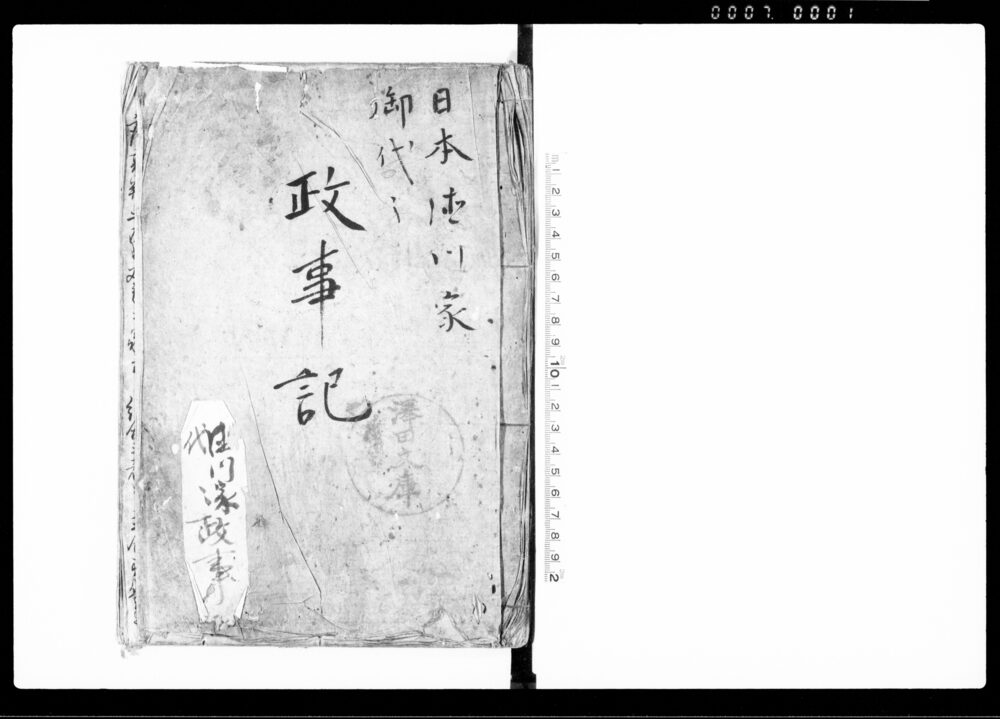 0007. 0001
日本徳川家
御代々
政事記
澤田文庫
徳川家政事
代
1 2 3 4 5 6 7 8 9 10 1 2 3 4 5 6 7 8 9 2